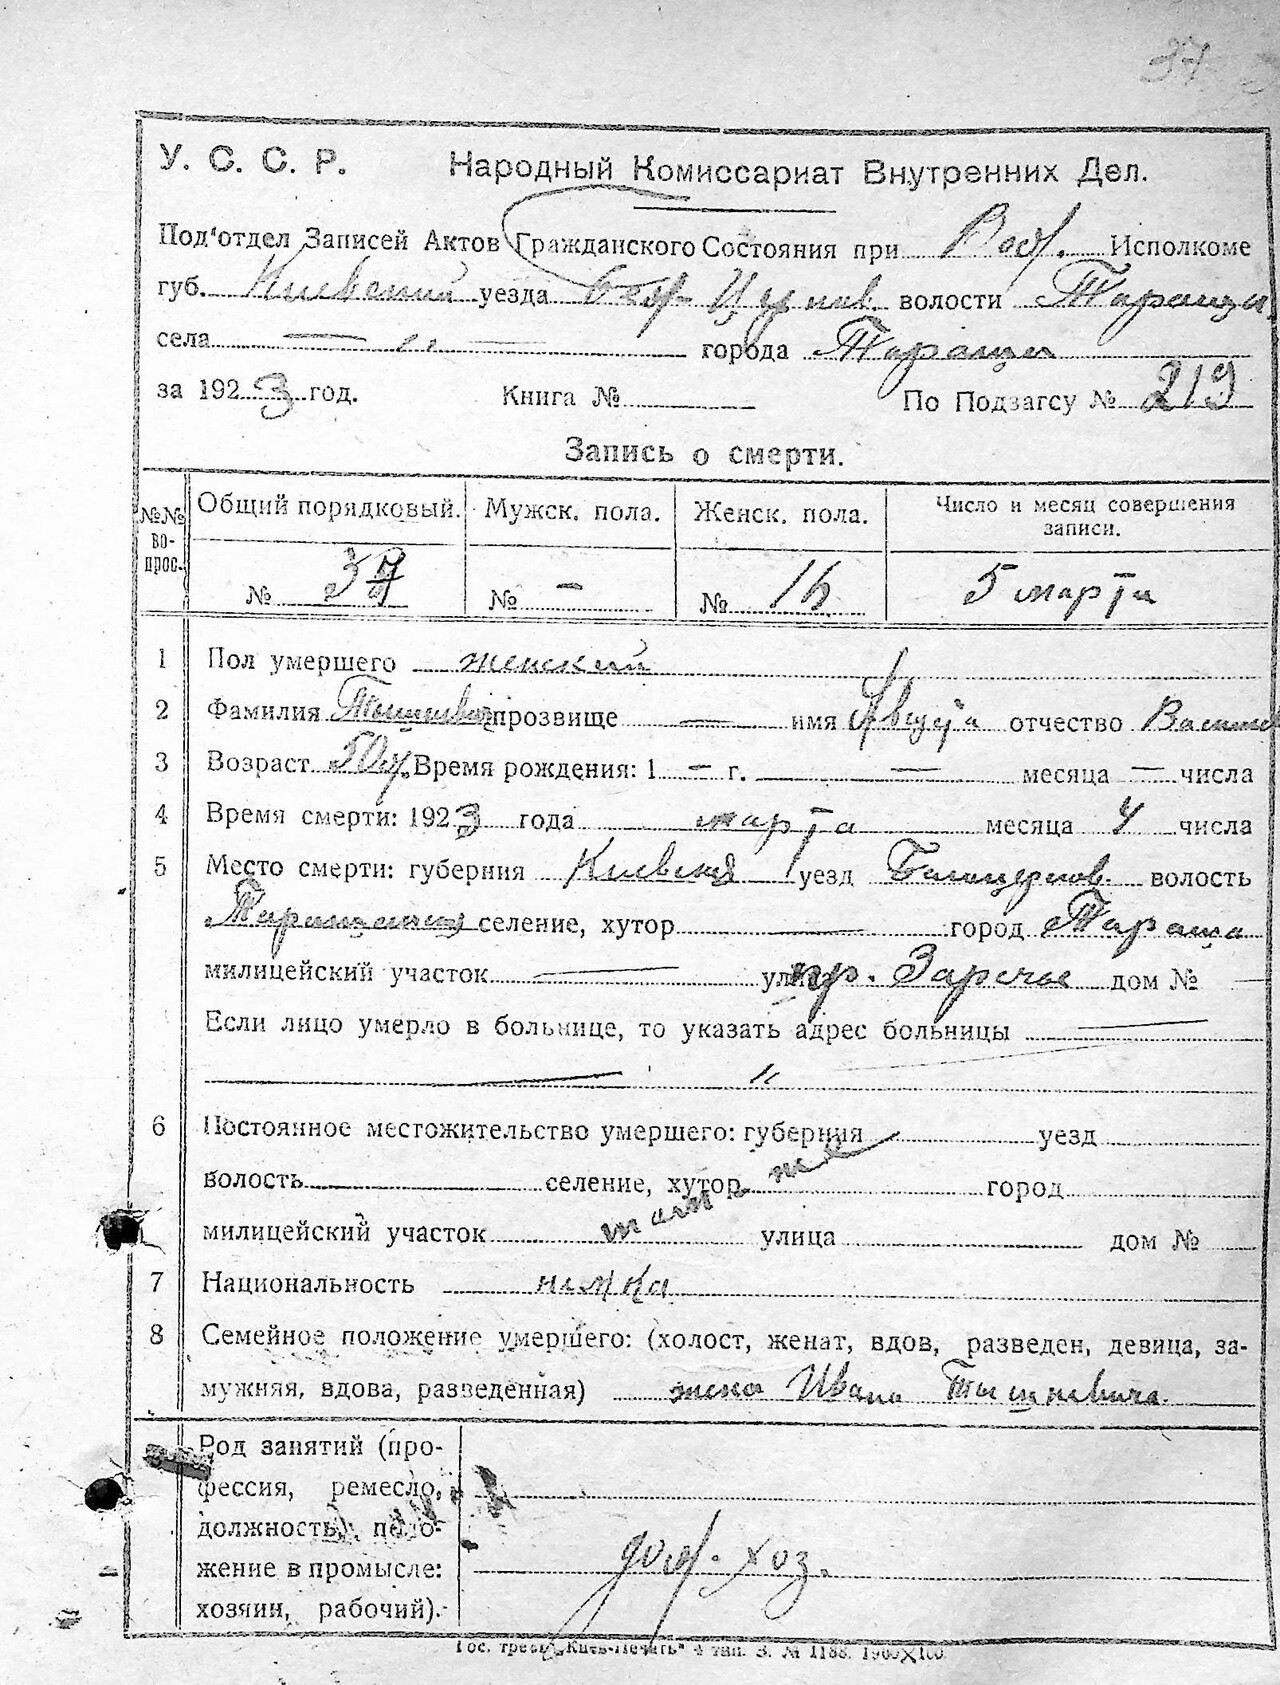 37
У. С. С. Р. Народный Комиссариат Внутренних Дел.
Под'отдел Записей Актов Гражданского Состояния при Вол. Исполкоме
губ. Киевский уезда Бел-Церков. волости Таращан.
села — „ — города Таращи
за 1923 год. Книга № По Подзагсу № 219
Запись о смерти.
№№ вопрос. Общий порядковый. Мужск. пола. Женск. пола. Число и месяц совершения записи.
№ 37 № — № 16 5 марта
1 Пол умершего женский
2 Фамилия Тышкевич прозвище — имя отчество Василь
3 Возраст 50 л. Время рождения: 1 — г. — месяца — числа
4 Время смерти: 1923 года марта месяца 4 числа
5 Место смерти: губерния Киевская уезд Белоцерков. волость
Таращанская селение, хутор — город Тараща
милицейский участок — улица пр. Заречье дом № —
Если лицо умерло в больнице, то указать адрес больницы —
— „
6 Постоянное местожительство умершего: губерния уезд
волость селение, хутор город
милицейский участок там же улица дом №
7 Национальность
8 Семейное положение умершего: (холост, женат, вдов, разведен, девица, за-
мужняя, вдова, разведенная) жена Ивана Тышкевича
Род занятий (про-
фессия, ремесло,
должность), поло-
жение в промысле:
хозяин, рабочий).
дом. хоз.
Гос. трест „Киев-Печать" 4 тип. З. № 1188. 1900×100.